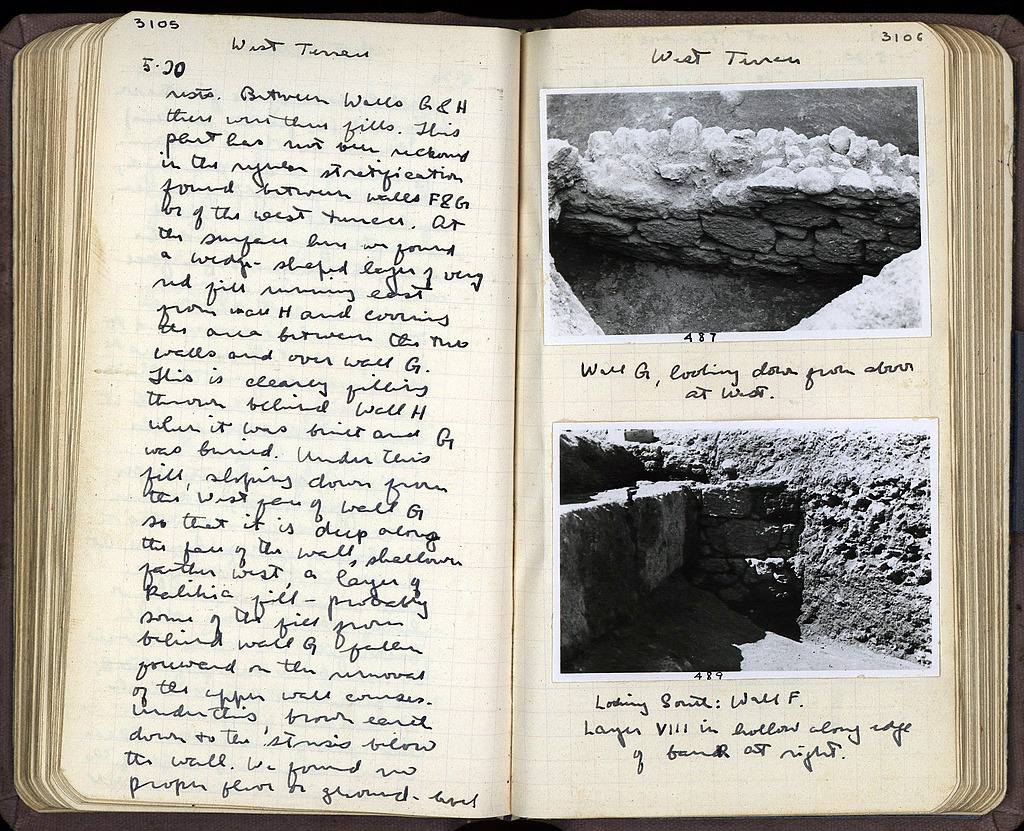 3105
West Terrace
5-20
rests. Between Walls G & H
there were three fills. This
part has not been reckoned
in the regular stratification
found between walls F & G
of the west terrace. At
the surface here we found
a wedge-shaped layer of very
red fill running east
from wall H and covering
the area between the two
walls and over wall G.
This is clearly filling
thrown behind Wall H
when it was built and G
was buried. Under this
fill, sloping down from
the West face of wall G
so that it is deep along
the face of the wall, shallower
farther west, a layer of
Kalihia fill - probably
some of the fill from
behind wall G fallen
forward on the removal
of the upper wall courses.
Under this, brown earth
down to the strosis below
the wall. We found no
proper floor or ground-level
3106
West Terrace
487
Wall G, looking down from above
at West.
489
Looking South: Wall F.
Layer VIII in hollow along edge
of bank at right.